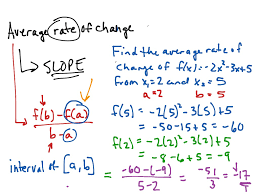 Average rate of change
↳ SLOPE
f(b) - f(a)
b - a
interval of [a, b]
Find the average rate of
change of f(x) = -2x² - 3x + 5
from x₁ = 2 and x₂ = 5
a = 2 b = 5
f(5) = -2(5)² - 3(5) + 5
= -50 - 15 + 5 = -60
f(2) = -2(2)² - 3(2) + 5
= -8 - 6 + 5 = -9
-60 - (-9) = -51 = -17
5 - 2 3 1